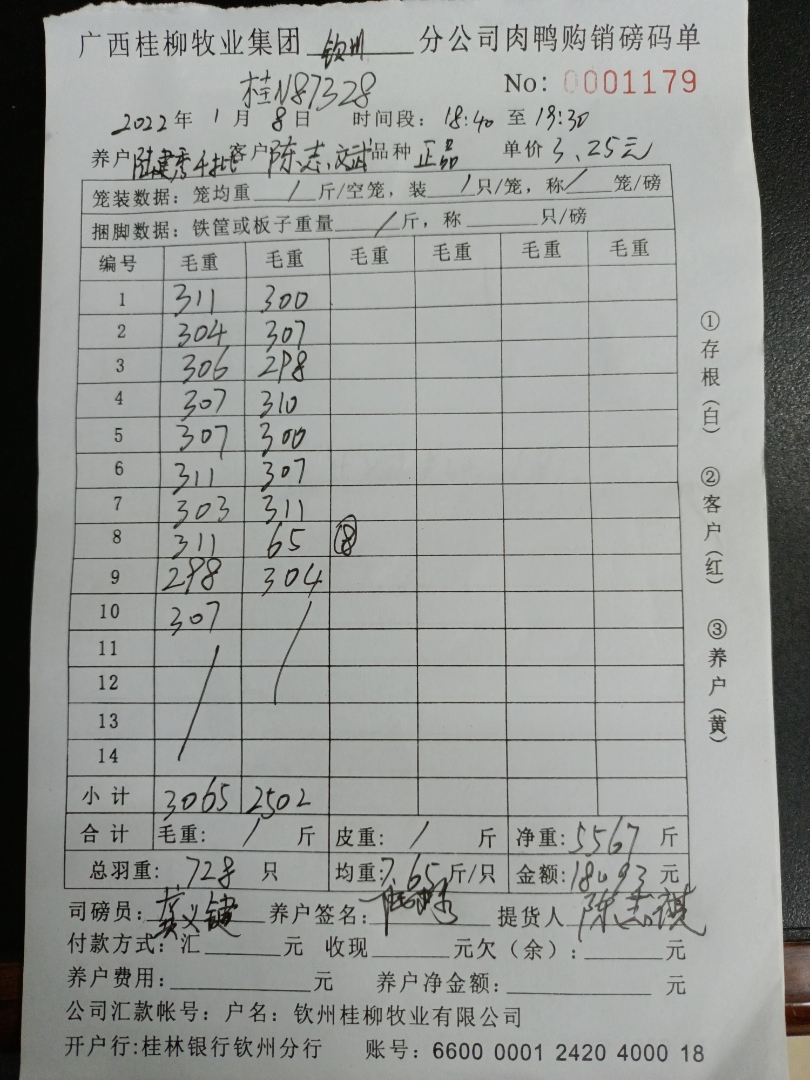 广西桂柳牧业集团 钦州 分公司肉鸭购销磅码单
桂N87328 No: 0001179
2022年 1月 8日 时间段: 18:40 至 19:30
养户 陆建秀 客户 陈志、文武 品种 正品 单价 3.25元
笼装数据: 笼均重 / 斤/空笼, 装 / 只/笼, 称 / 笼/磅
捆脚数据: 铁筐或板子重量 / 斤, 称 只/磅
编号 毛重 毛重 毛重 毛重 毛重 毛重
1 311 300
2 304 307
3 306 298
4 307 310
5 307 300
6 311 307
7 303 311
8 311 65 ⑱
9 298 304
10 307
11
12
13
14
小计 3065 2502
合计 毛重: / 斤 皮重: / 斤 净重: 5567 斤
总羽重: 728 只 均重: 7.65 斤/只 金额: 18093 元
司磅员: 龚义键 养户签名: 提货人 陈志祺
付款方式: 汇 元 收现 元欠(余): 元
养户费用: 元 养户净金额: 元
公司汇款帐号: 户名: 钦州桂柳牧业有限公司
开户行:桂林银行钦州分行 账号: 6600 0001 2420 4000 18
①存根(白) ②客户(红) ③养户(黄)